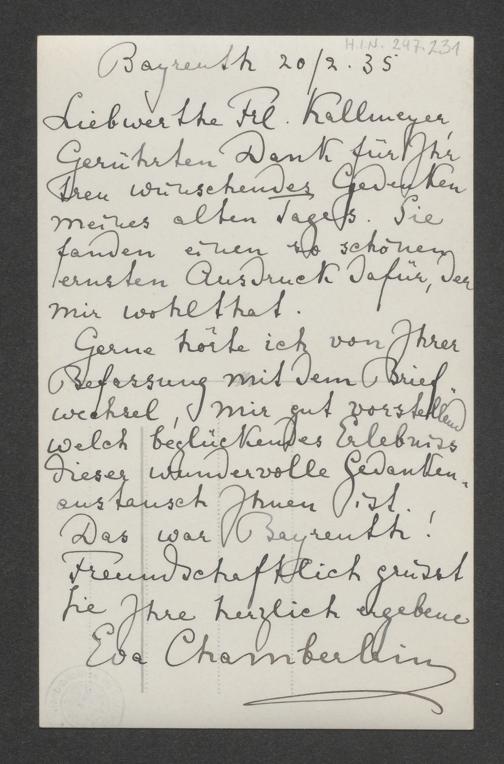 H.I.N. 247.231
Bayreuth 20/2. 35
Liebwerthe Frl. Kallmeyer
Gerührten Dank für Ihr
treu wünschendes Gedenken
meines alten Tages. Sie
fanden einen so schönen
ernsten Ausdruck dafür, der
mir wohlthat.
Gerne hörte ich von Ihrer
Befassung mit dem Brief-
wechsel, mir gut vorstellend
welch beglückendes Erlebniss
dieser wundervolle Gedanken-
austausch Ihnen ist.
Das war Bayreuth!
Freundschaftlich grüsst
Sie Ihre herzlich ergebene
Eva Chamberlain